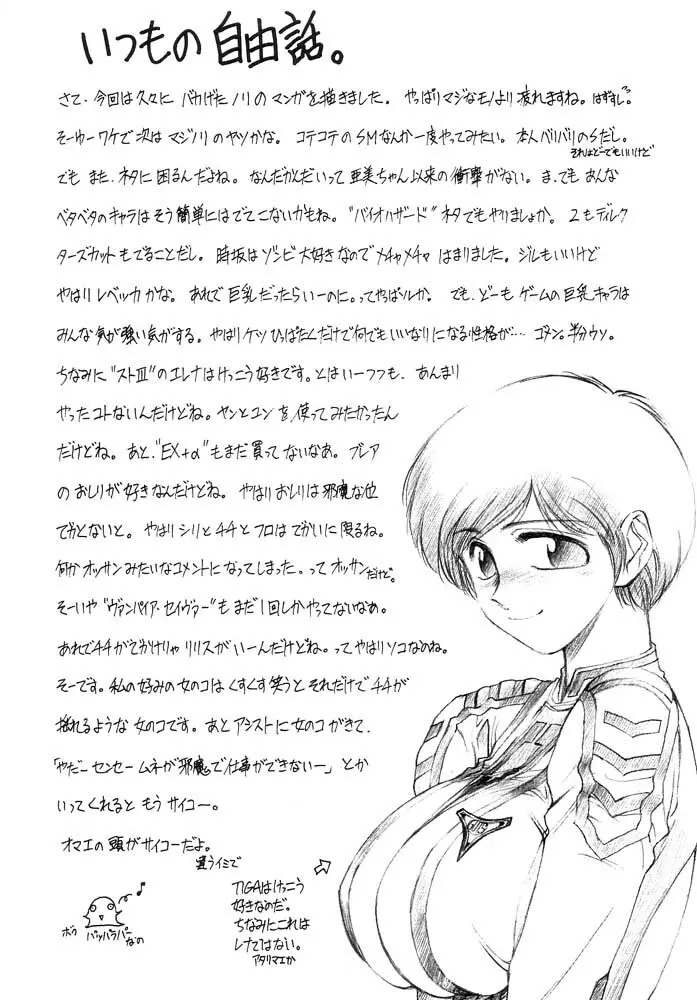 いつもの自由話。
さて、今回は久々にバカげたノリのマンガを描きました。やっぱりマジなモノより疲れますね。はずすし。
そーゆーワケで次はマジノリのヤツかな。コテコテのSMなんか一度やってみたい。本人バリバリのSだし。
それはどーでもいいけど
でもまた、ネタに困るんだよね。なんだかんだいって亜美ちゃん以来の衝撃がない。ま、でもあんな
ベタベタのキャラはそう簡単にはでてこないかもね。"バイオハザード"ネタでもやりましょか。2もディレク
ターズカットもでることだし。時坂はゾンビ大好きなのでメチャメチャはまりました。ジルもいいけど
やはりレベッカかな。あれで巨乳だったらいーのに。ってやっぱソレか。でも、どーもゲームの巨乳キャラは
みんな気が強い気がする。やはりケツひっぱたくだけで何でもいいなりになる性格が…ゴメン。半分ウソ。
ちなみに"ストⅢ"のエレナはけっこう好きです。とはいーつつも、あんまり
やったコトないんだけどね。ヤンとユンを使ってみたかったん
だけどね。あと、"EX+α"もまだ買ってないなあ。ブレア
のおしりが好きなんだけどね。やはりおしりは邪魔な位
でかとないと。やはりシリとチチとフロはでかいに限るね。
何かオッサンみたいなコメントになってしまった。ってオッサンだけど。
そーいや"ヴァンパイア・セイヴァー"もまだ1回しかやってないなあ。
あれでチチがでかけりゃリリスがいーんだけどね。ってやはりソコなのね。
そーです。私の好みの女のコはくすくす笑うとそれだけでチチが
揺れるような女のコです。あとアシストに女のコがきて、
「やだーセンセームネが邪魔で仕事ができないー」とか
いってくれるともうサイコー。
オマエの頭がサイコーだよ。
違うイミで
ボク パッパラパーなの
TIGAはけっこう
好きなのだ。
ちなみにこれは
レナではない。
アタリマエか
GUTS